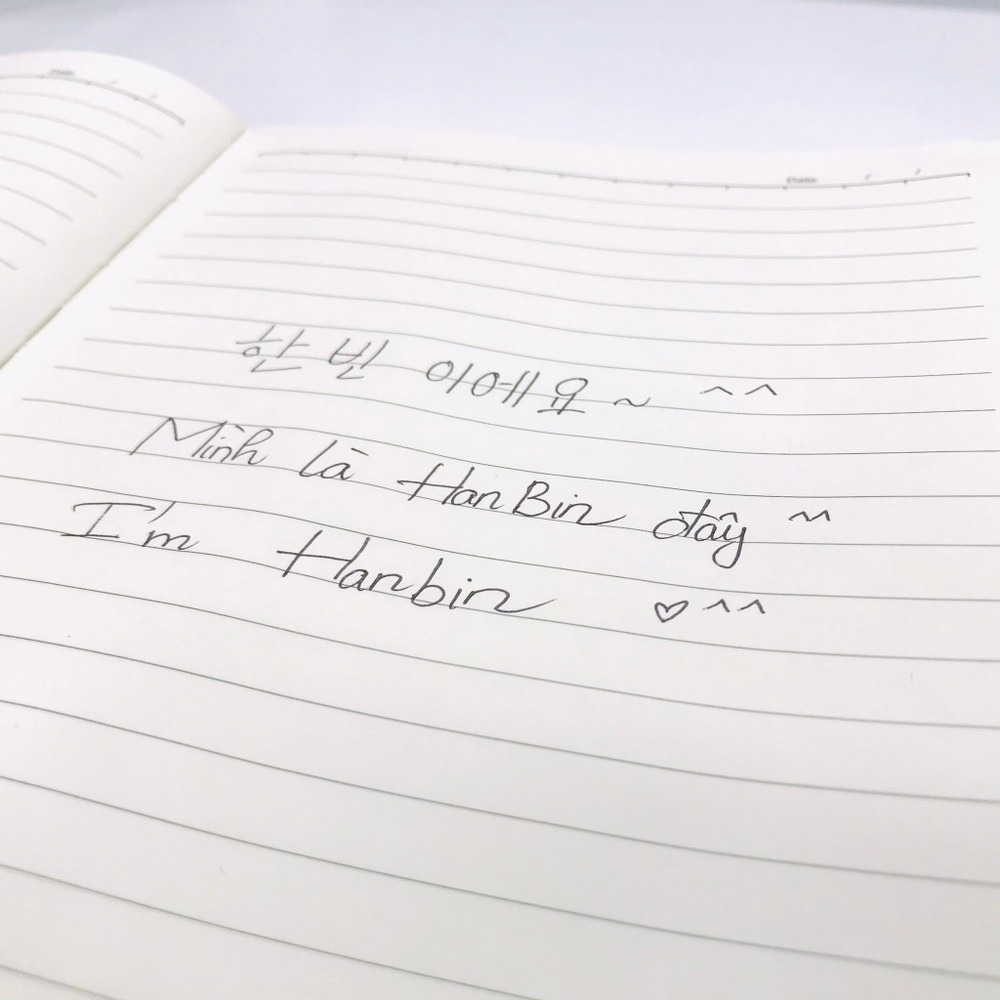 Date / /
한빈 이에요~ ^^
Mình là HanBin đây ^^
I'm Hanbin ♡^^